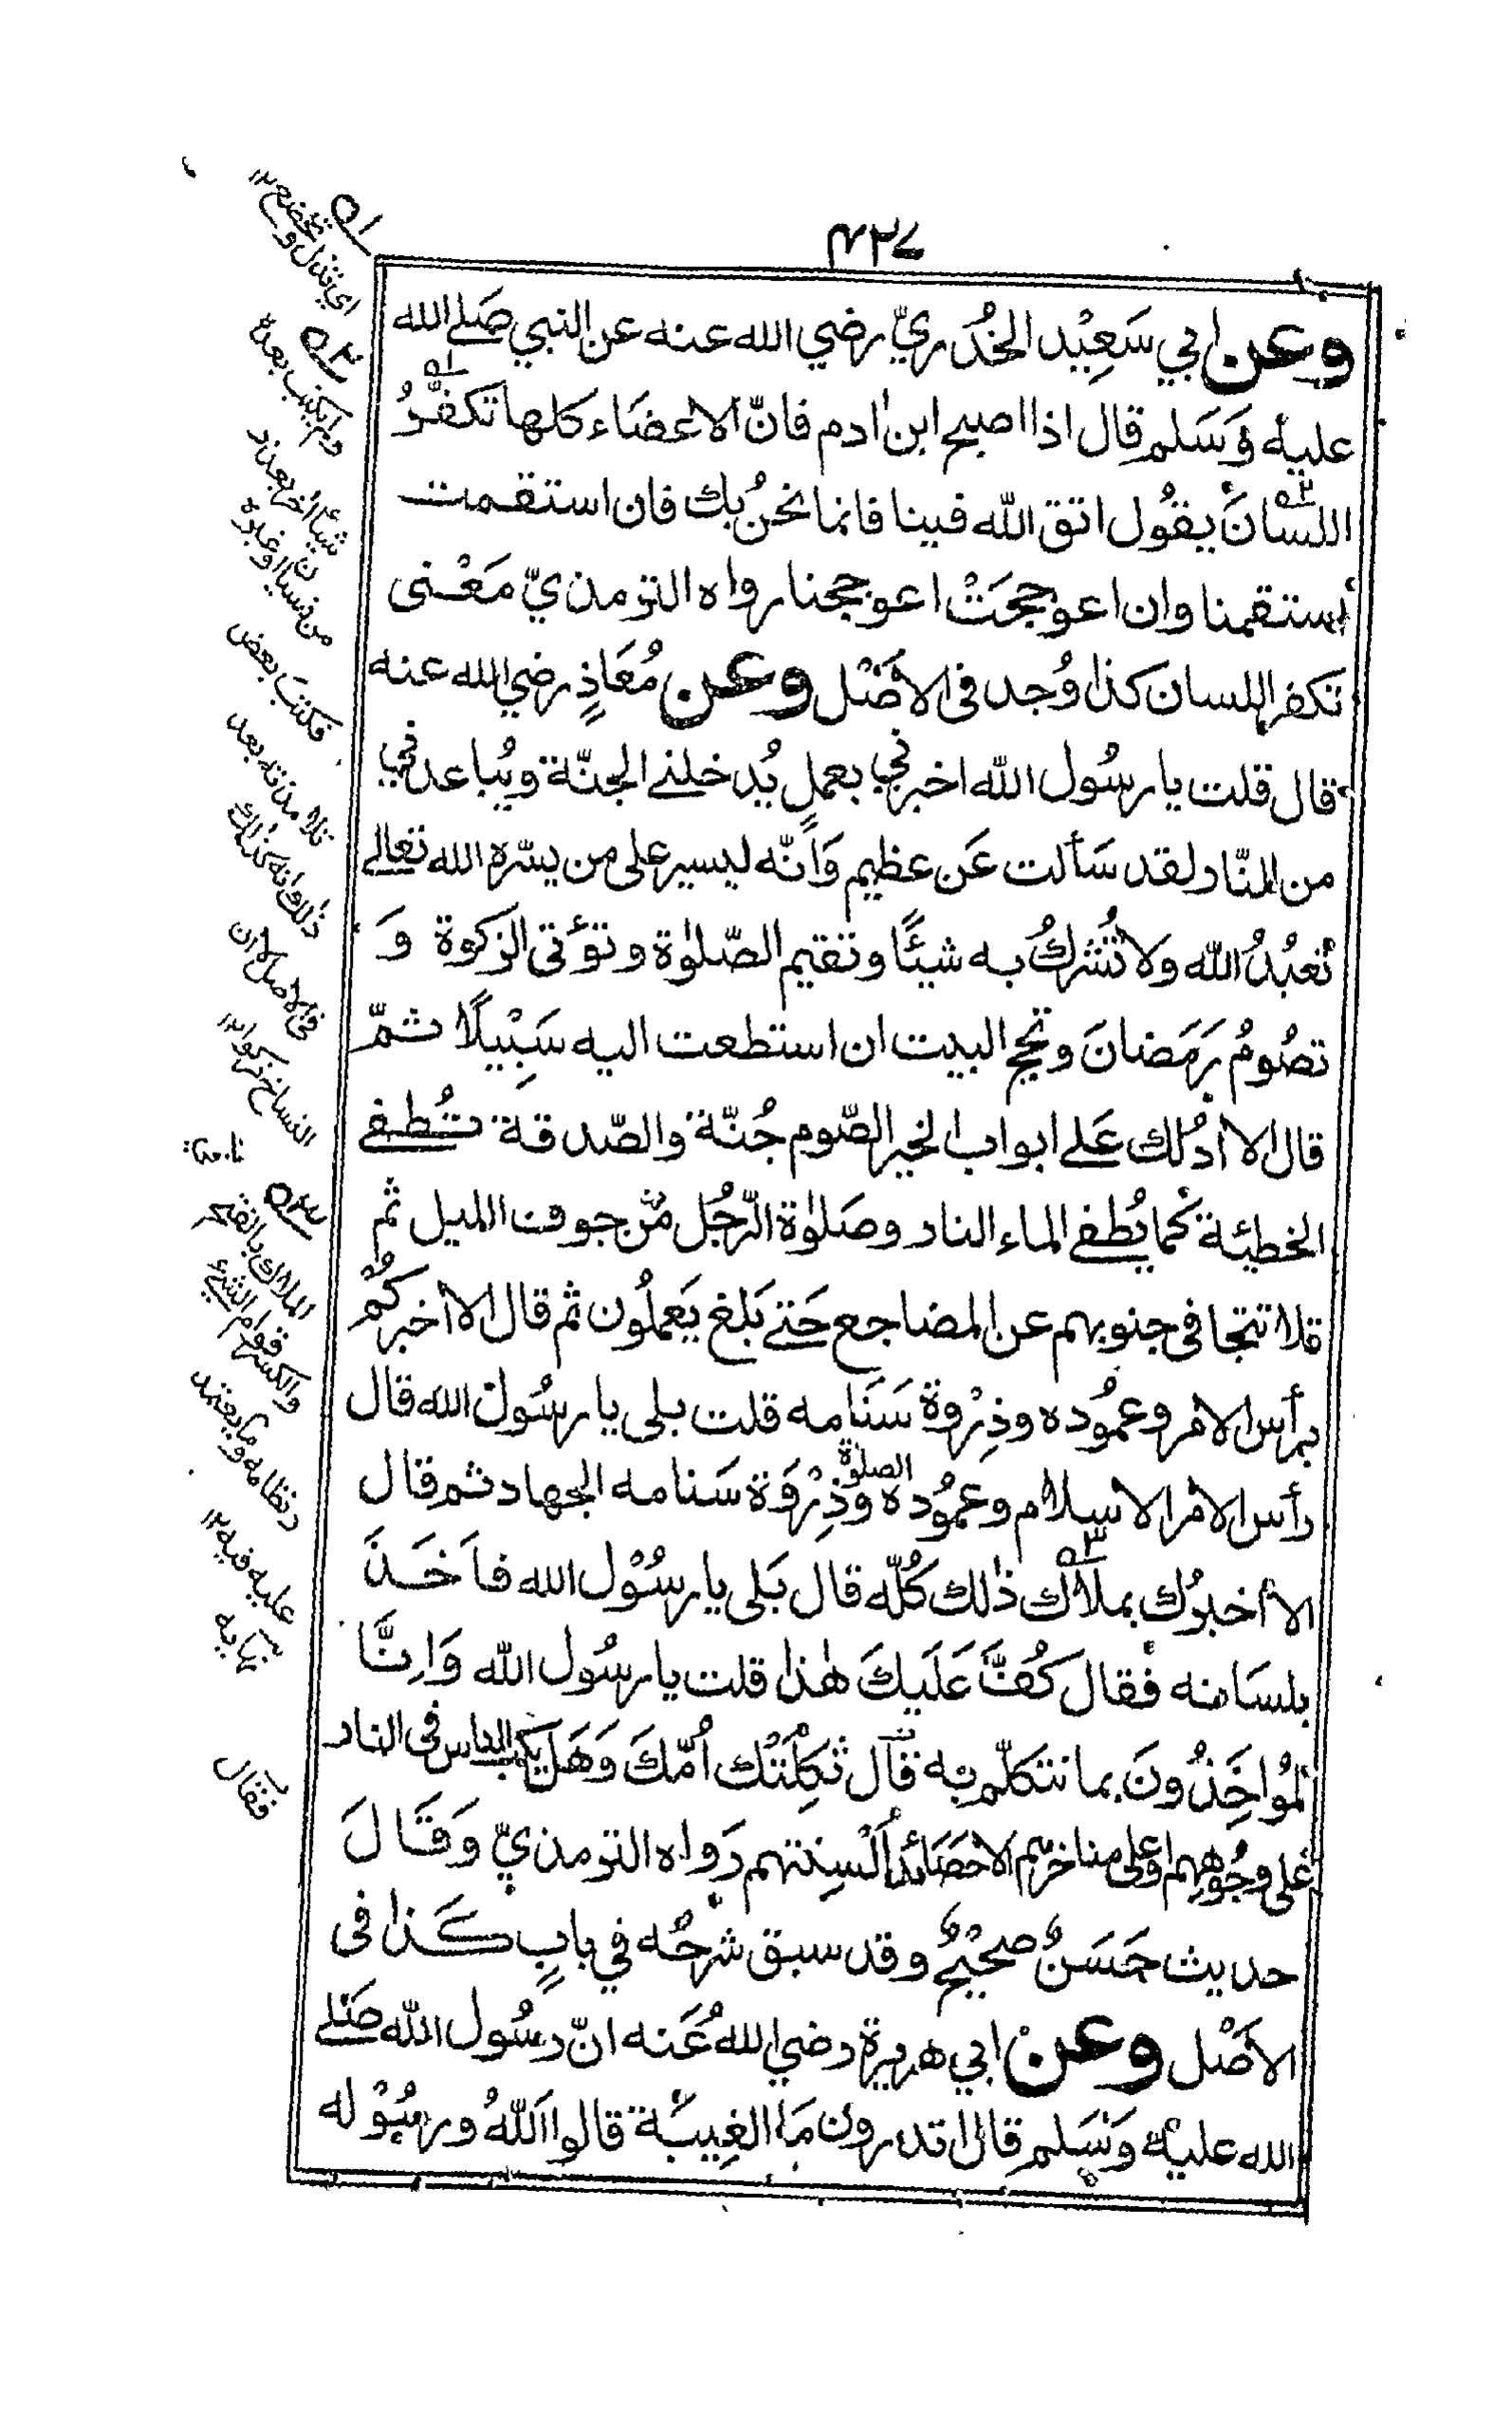 ٤٢٧
وعن ابي سَعِيْد الخُدريّ رضي الله عنه عن النبي صَلے الله
عليه وَسَلم قال اذا اصبح ابن اٰدم فانّ الاعضاء كلها تكفّرُ
اللسانَ يقُول اتق اللّٰه فينا فانما نحنُ بك فان استقمت
استقمنا وان اعوججَتْ اعوججنا رواه الترمذيّ مَعْنى
تكفر اللسان كذا وُجد فى الاَصْل وعن مُعَاذٍ رضي الله عنه
قال قلت يا رسُول اللّٰه اخبرني بعملٍ يُدخلنے الجنّة ويُباعدني
من النّار لقد سَألت عَن عظيم وَاَنّه ليسير على من يسّره الله تعالے
تعبُدُ اللّٰه ولا تُشركُ به شيئًا وتقيم الصّلوٰة وتؤتى الزكوة وَ
تصُومُ رَمَضانَ وتحج البيت ان استطعت اليه سَبِيْلًا ثمّ
قال الا ادُلك عَلے ابواب الخير الصّوم جُنّة والصّدقة تُطفے
الخطيئة كما يُطفے الماء النار وصَلوٰة الرّجُل مّن جوف الليل ثم
تلا تتجافى جنوبهم عن المضاجع حَتے بَلغ يَعملُون ثم قال الا اخبركُم
برأس الامر وعمُوده وذِرْوة سَنَامه قلت بلى يا رسُول الله قال
رأس الامر الاسلام وعمُوده الصلوٰة وذِرْوَة سَنامه الجهاد ثم قال
الا اُخبرُك بملاك ذٰلك كُلّه قال بَلى يا رسُوْل الله فاَخَذَ
بلسَانه فقال كُفَّ عَلَيكَ هٰذا قلت يا رسُول اللّٰه وَاِنَّا
لمُواخَذُونَ بما نتكلّم به قال ثَكِلَتْك اُمّكَ وَهَل يكب الناس فى النار
على وجُوههم او على مناخرهم الا حَصَائد اَلْسِنتهم رَواه الترمذيّ وَقَالَ
حديث حَسَنٌ صحيْحٌ وقد سبق شرحُه في بابٍ كذا فى
الاَصْل وعن ابي هريرة رضي اللهُ عَنه انّ رسُول اللّٰه صَلے
الله عليه وَسَلم قال اتدرون مَا الغِيبَة قالوا اَللّٰهُ ورسُوْله
اي تذل وتخضع ١٢
ولم يكتب بعده
من نسيا او غيره
فكتب بعض
تلامذته بعد
ذلك وانه كذلك
فى الاصل لان
النساخ ذكروا ١٢
الملاك بالفتح
والكسر قوام الشئ
ونظامه وما يعتمد
عليه فيه ١٢
نهايه
فقال